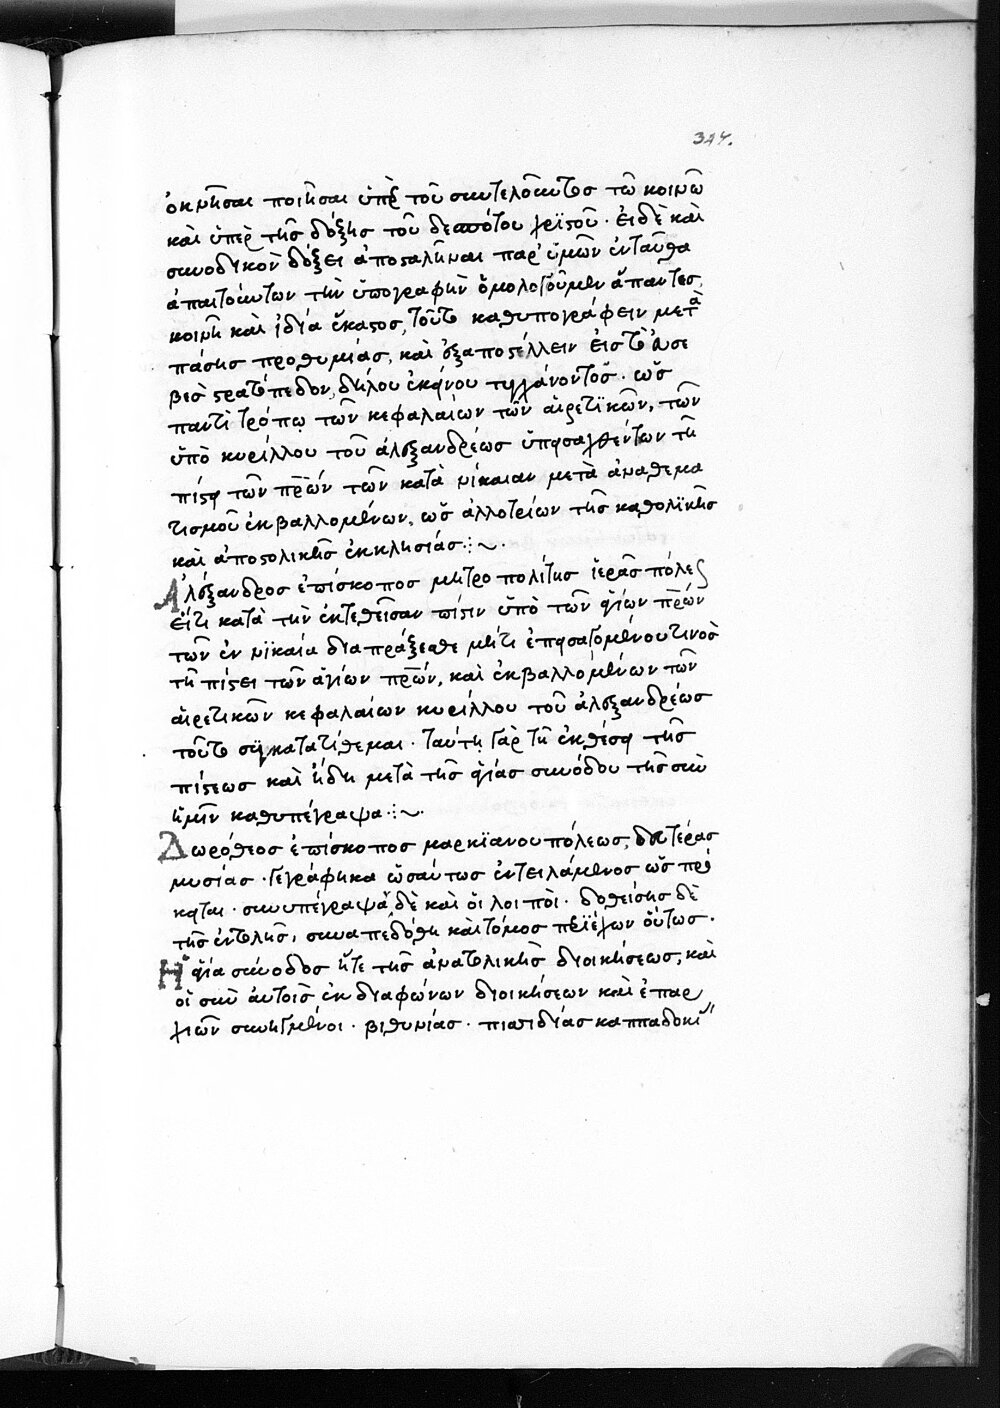 324.
ὀκνῆσαι ποιῆσαι ὑπὲρ τοῦ συντελοῦντοσ τῶ κοινῶ
καὶ ὑπὲρ τῆσ δόξησ τοῦ δεσπότου χριστοῦ · εἰ δὲ καὶ
συνοδικὸν δόξει ἀποσταλῆναι παρ' ὑμῶν ἐνταῦθα
ἀπαιτούντων τὴν ὑπογραφὴν ὁμολογοῦμεν ἅπαντεσ,
κοινῆ καὶ ἰδία ἕκαστοσ, τοῦτο καθυπογράφειν μετὰ
πάσησ προθυμίασ, καὶ ἐξαποστέλλειν εἰσ τὸ εὐσε
βὲσ στρατόπεδον, δήλου ἐκείνου τυγχάνοντοσ · ὡσ
παντὶ τρόπω τῶν κεφαλαίων τῶν αἱρετικῶν, τῶν
ὑπὸ κυρίλλου τοῦ ἀλεξανδρέωσ ὑπεισαχθέντων τῆ
πίστει τῶν πρ̅ων τῶν κατὰ νίκαιαν μετὰ ἀναθεμα
τισμοῦ ἐκβαλλομένων, ὡσ ἀλλοτρίων τῆσ καθολϊκῆσ
καὶ ἀποστολικῆσ ἐκκλησίασ :~ ·
Ἀλέξανδροσ ἐπίσκοποσ μητροπολίτησ ἱερᾶσ πόλεωσ
εἴ τι κατὰ τὴν ἐκτεθεῖσαν πίστιν ὑπὸ τῶν ἁγίων πρ̅ων
τῶν ἐν νϊκαία διαπράξεσθε μήτι ἐπεισαγομένου τινοσ
τῆ πίστει τῶν ἁγίων πρ̅ων, καὶ ἐκβαλλομένων τῶν
αἱρετικῶν κεφαλαίων κυρίλλου τοῦ ἀλεξανδρέωσ
τοῦτο συγκατατίθεμαι · ταύτη γὰρ τῆ ἐκθέσει τῆσ
πίστεωσ καὶ ἤδη μετὰ τῆσ ἁγίασ συνόδου τῆσ σὺν
ἡμῖν καθυπέγραψα :~ ·
Δωρόθεοσ ἐπίσκοποσ μαρκϊανουπόλεωσ, δευτέρασ
μυσίασ · γεγράφηκα ὡσαύτωσ ἐντειλάμενοσ ὡσ πρό
κειται · συνυπέγραψαν δὲ καὶ οἱ λοιποὶ · δοθείσησ δὲ
τῆσ ἐντολῆσ, συναπεδόθη καὶ τόμοσ περϊέχων οὕτωσ ·
Ἡ ἁγία σύνοδοσ ἥτε τῆσ ἀνατολικῆσ διοικήσεωσ, καὶ
οἱ σὺν αὐτοῖσ ἐκ διαφόνων διοικήσεων καὶ ἐπαρ
χιῶν συνηγμένοι · βιθυνίασ · πισιδίασ καππαδοκί